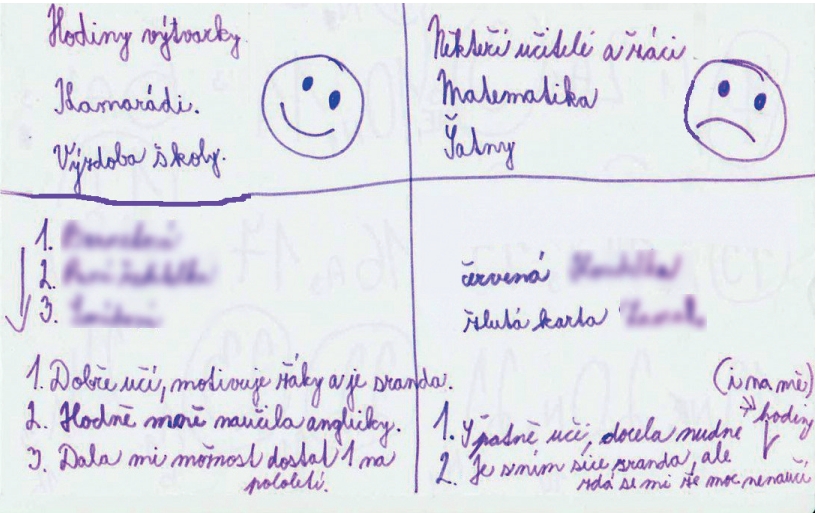 Hodiny výtvarky.
Kamarádi.
Výzdoba školy.
Někteří učitelé a žáci
Matematika
Šatny
1.
2.
3.
1. Dobře učí, motivuje žáky a je sranda.
2. Hodně moně naučila anglicky.
3. Dala mi možnost dostat 1 na
pololetí.
červená
žlutá karta
(i na mě)
1. Špatně učí, docela nudné hodiny
2. Je s ním sice sranda, ale
zdá se mi že moc nenaučí